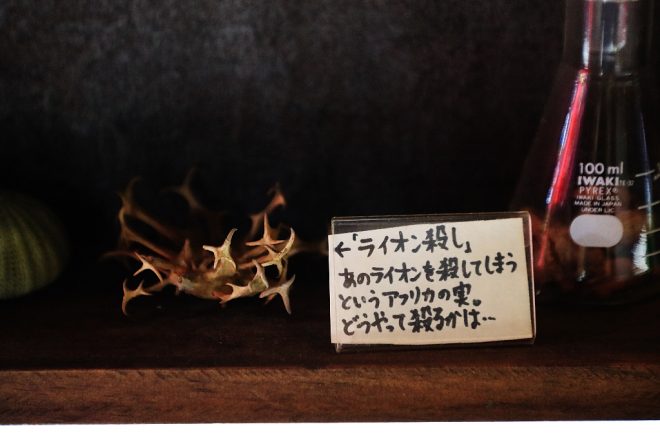 ←「ライオン殺し」
あのライオンを殺してしまう
というアフリカの実。
どうやって殺るかは…
100 ml
IWAKI TE-32
PYREX®
IWAKI GLASS
MADE IN JAPAN
UNDER LIC.